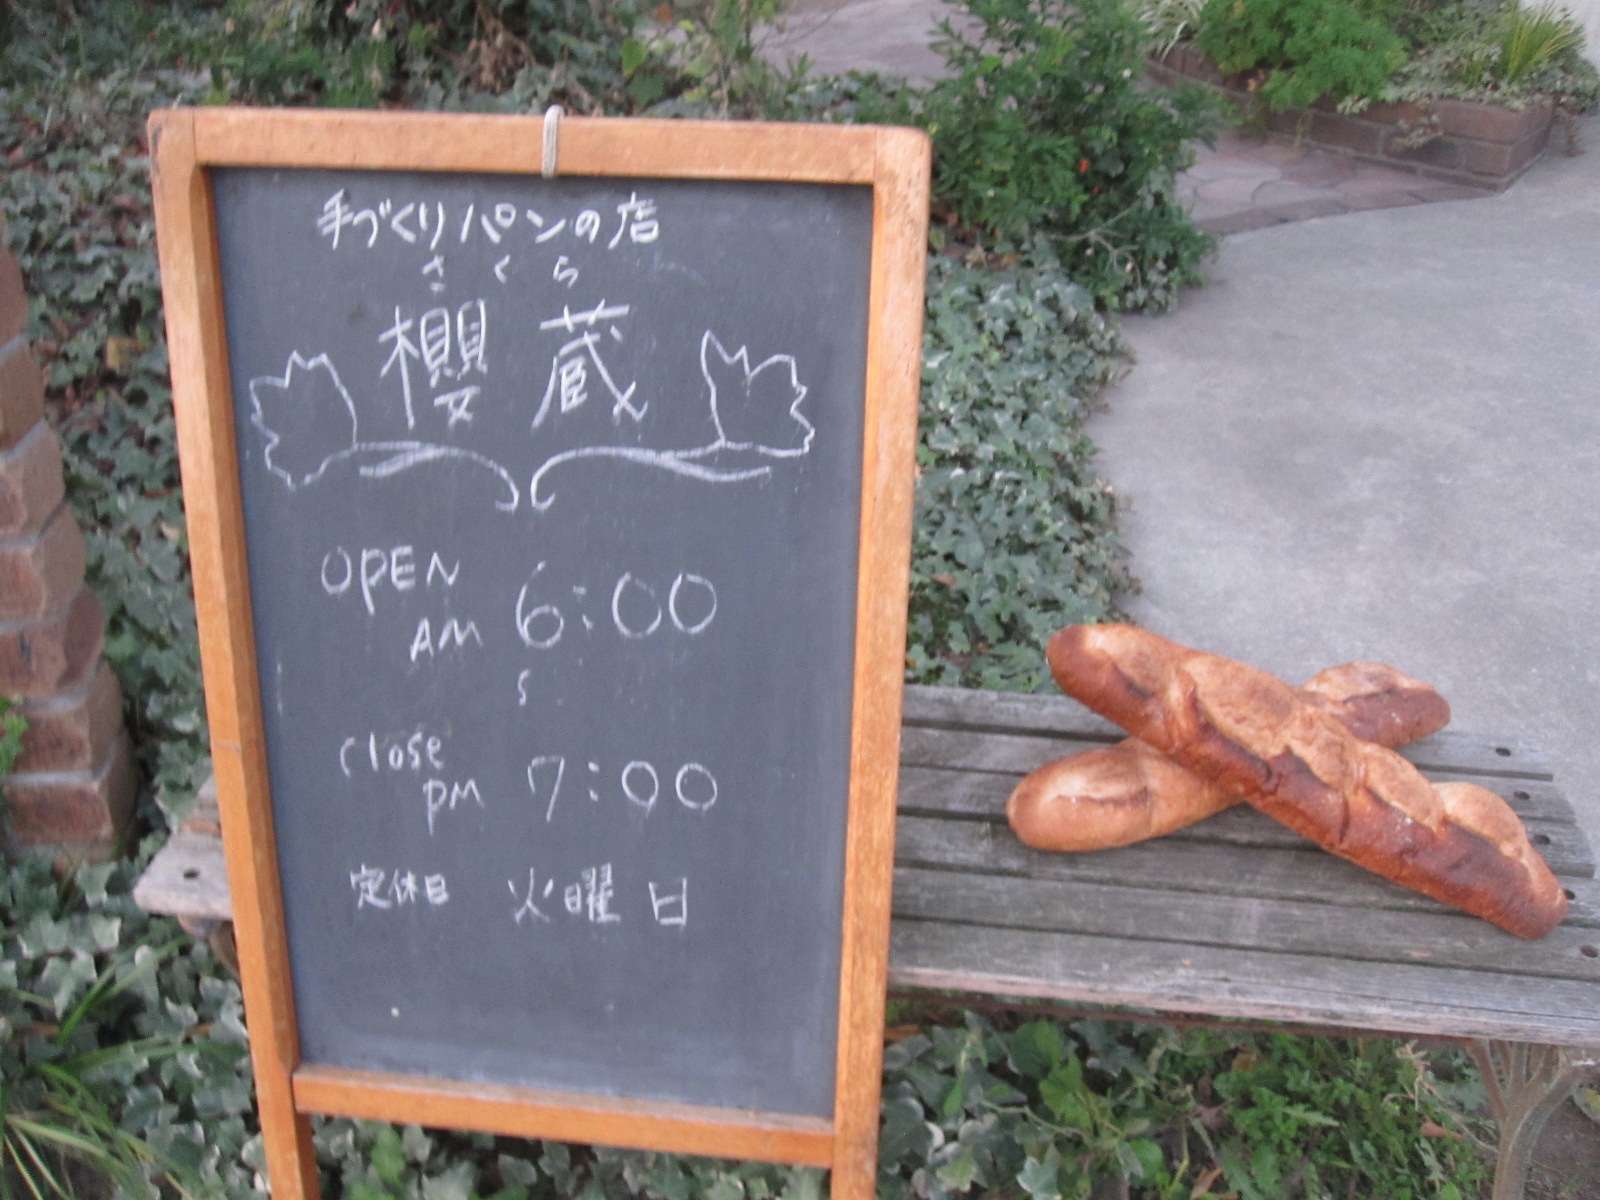 手づくりパンの店
さくら
櫻蔵
OPEN
AM 6:00
〜
close
PM 7:00
定休日 火曜日